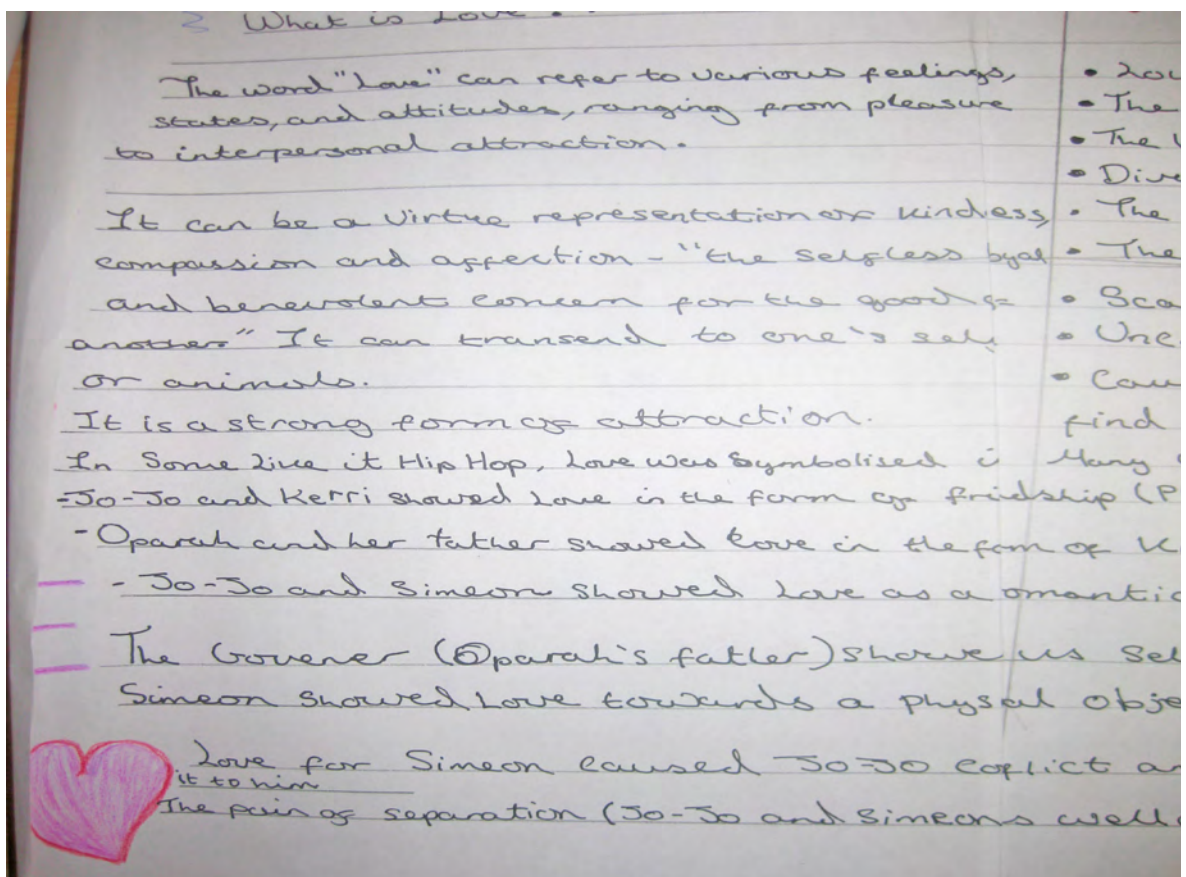 What is Love
The word "Love" can refer to various feelings,
states, and attitudes, ranging from pleasure
to interpersonal attraction.
It can be a virtue representation of kindess,
compassion and affection - "the selfless
and benevolent concern for the good of
another" It can transend to one's self
or animals.
It is a strong form of attraction.
In Some Like it Hip Hop, Love was Symbolised i Many
-Jo-Jo and Kerri showed Love in the form of friedship (P
- Oparah and her father showed love in the fom of K
- Jo-Jo and Simeon showed Love as a omantic
The Govener (Oparah's father) showe us Sel
Simeon showed Love towards a physal obje
Love for Simeon caused Jo-Jo coflict an
it to him
The pain of separation (Jo-Jo and Simeons well
• Lov
• The
• The
• Dive
• The
• The
• Sca
• Unc
• Cau
find